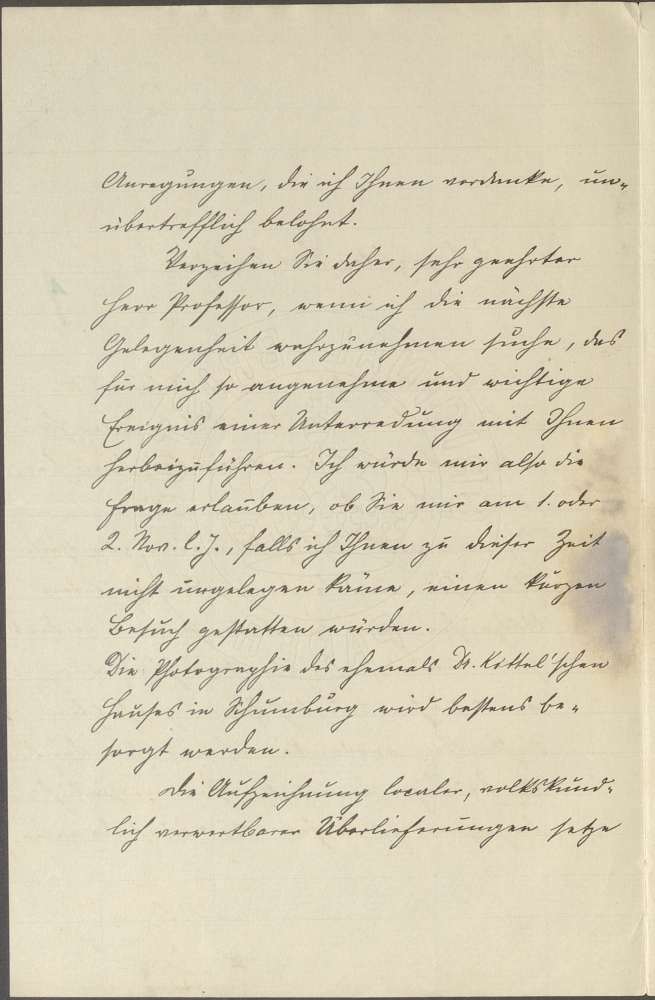 Anregungen, die ich Ihnen verdanke, un-
übertrefflich belohnt.
Verzeihen Sie daher, sehr geehrter
Herr Professor, wenn ich die nächste
Gelegenheit wahrzunehmen suche, das
für mich so angenehme und wichtige
Ereignis einer Unterredung mit Ihnen
herbeizuführen. Ich würde mir also die
Frage erlauben, ob Sie mir am 1. oder
2. Nov. l. J., falls ich Ihnen zu dieser Zeit
nicht ungelegen käme, einen kurzen
Besuch gestatten würden.
Die Photographie des ehemals Dr. Kittel'schen
Hauses in Schumburg wird bestens be-
sorgt werden.
Die Aufzeichnung localer, volkskund-
lich verwertbarer Überlieferungen setze